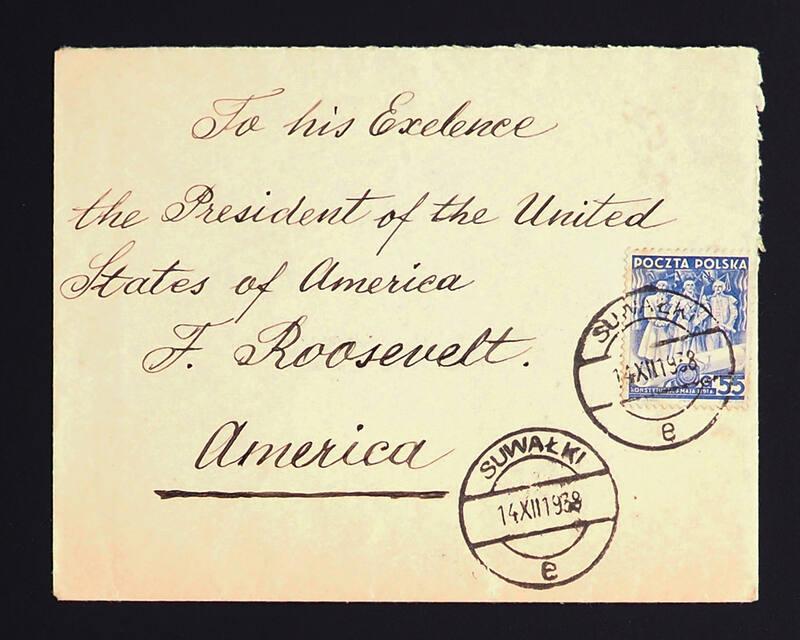 To his Exelence
the President of the United
States of America
F. Roosevelt.
America
POCZTA POLSKA
KONSTYTUCJA 3 MAJA 1791 R.
G 55
SUWAŁKI
14XII1938
e
SUWAŁKI
14XII1938
e